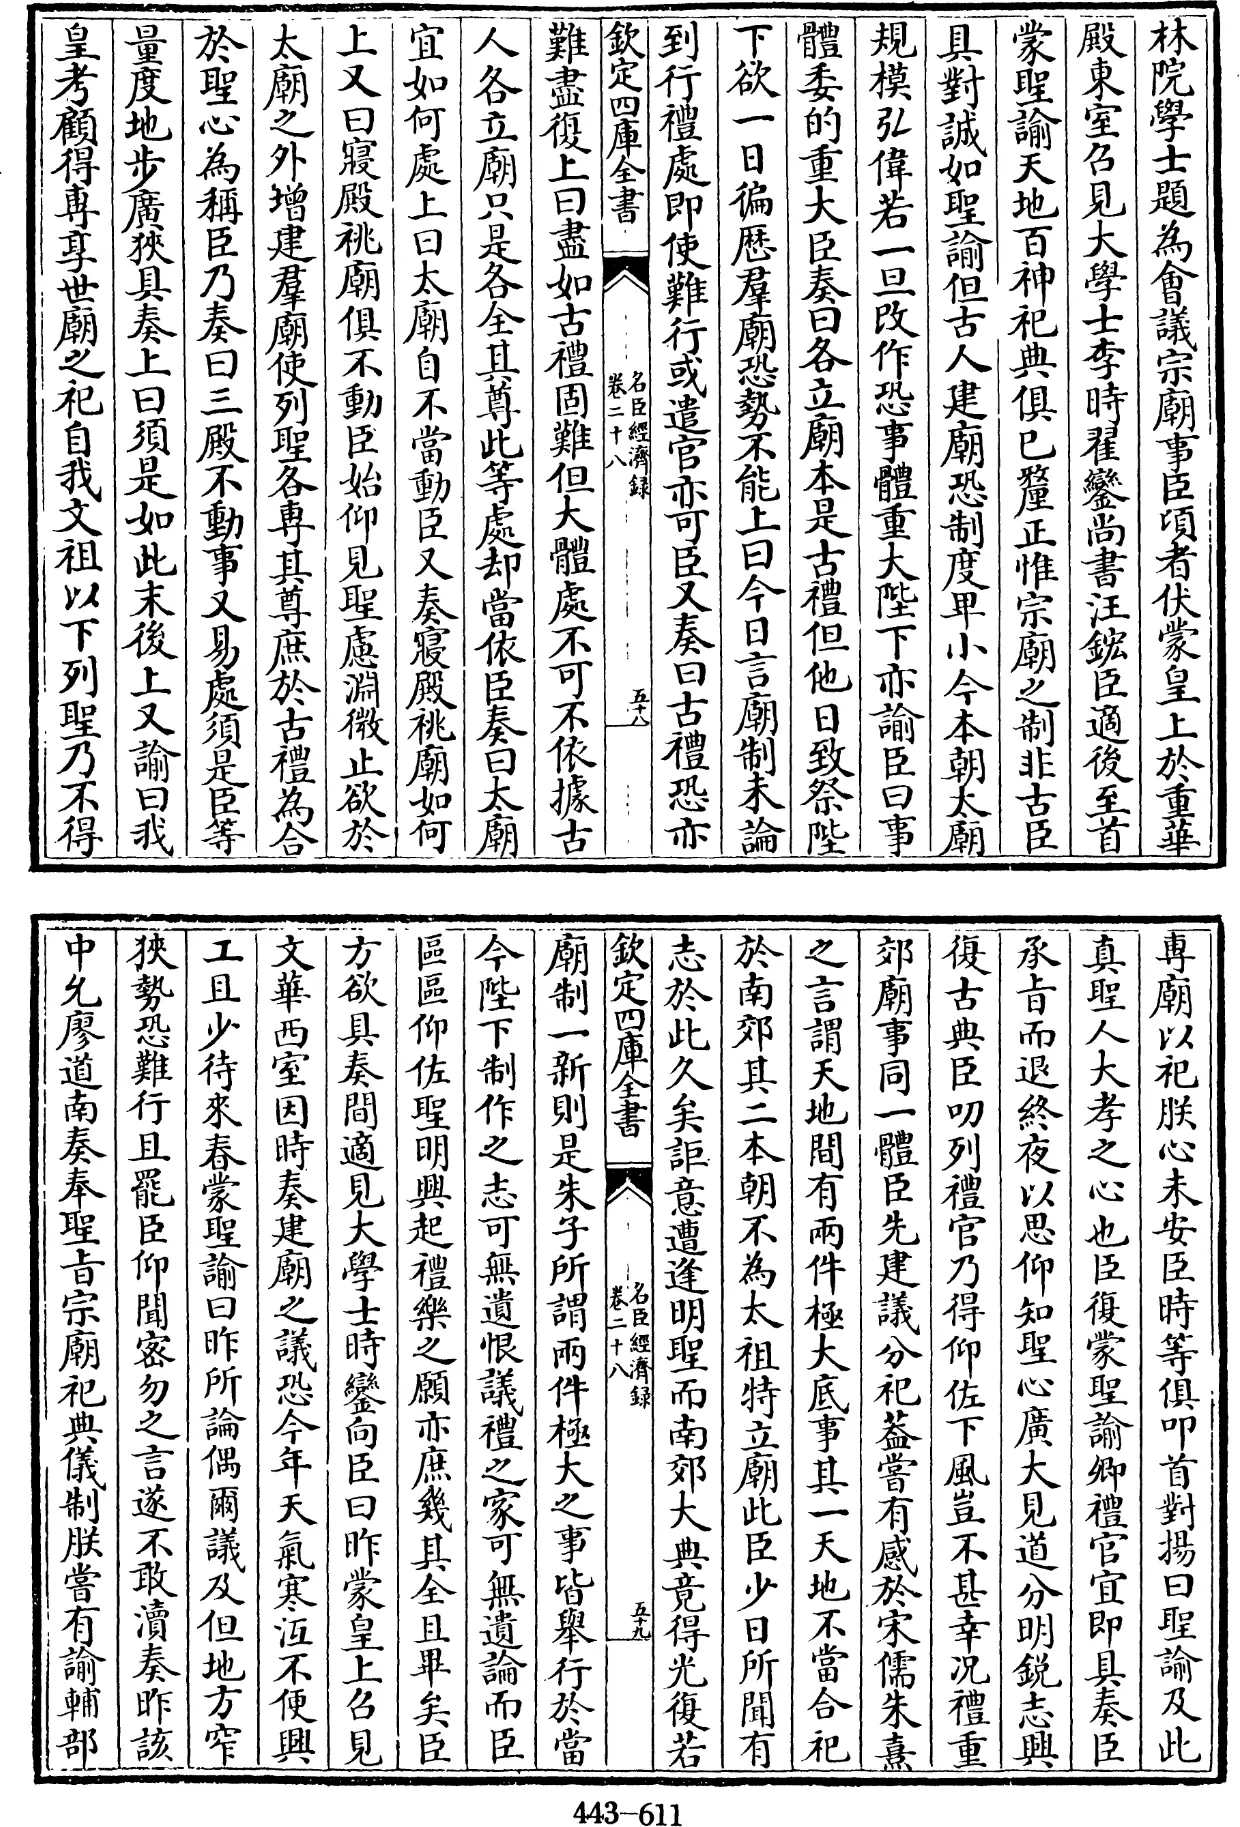 林院學士題為會議宗廟事臣頃者伏蒙皇上於重華
殿東室召見大學士李時翟鑾尚書汪鋐臣適後至首
蒙聖諭天地百神祀典俱已釐正惟宗廟之制非古臣
具對誠如聖諭但古人建廟恐制度卑小今本朝太廟
規模弘偉若一旦改作恐事體重大陛下亦諭臣曰事
體委的重大臣奏曰各立廟本是古禮但他日致祭陛
下欲一日徧厯羣廟恐勢不能上曰今日言廟制未論
到行禮處即使難行或遣官亦可臣又奏曰古禮恐亦
欽定四庫全書
名臣經濟録
卷二十八
五十八
難盡復上曰盡如古禮固難但大體處不可不依據古
人各立廟只是各全其尊此等處却當依臣奏曰太廟
宜如何處上曰太廟自不當動臣又奏寢殿祧廟如何
上又曰寢殿祧廟俱不動臣始仰見聖慮淵微止欲於
太廟之外增建羣廟使列聖各専其尊庶於古禮為合
於聖心為稱臣乃奏曰三殿不動事又易處須是臣等
量度地步廣狹具奏上曰須是如此末後上又諭曰我
皇考顧得専享世廟之祀自我文祖以下列聖乃不得
専廟以祀朕心未安臣時等俱叩首對揚曰聖諭及此
真聖人大孝之心也臣復蒙聖諭卿禮官宜即具奏臣
承旨而退終夜以思仰知聖心廣大見道分明鋭志興
復古典臣叨列禮官乃得仰佐下風豈不甚幸况禮重
郊廟事同一體臣先建議分祀葢嘗有感於宋儒朱熹
之言謂天地間有兩件極大底事其一天地不當合祀
於南郊其二本朝不為太祖特立廟此臣少日所聞有
志於此久矣詎意遭逢明聖而南郊大典竟得光復若
欽定四庫全書
名臣經濟録
卷二十八
五十九
廟制一新則是朱子所謂兩件極大之事皆舉行於當
今陛下制作之志可無遺恨議禮之家可無遺論而臣
區區仰佐聖明興起禮樂之願亦庶幾其全且畢矣臣
方欲具奏間適見大學士時鑾向臣曰昨蒙皇上召見
文華西室因時奏建廟之議恐今年天氣寒沍不便興
工且少待來春蒙聖諭曰昨所論偶爾議及但地方窄
狹勢恐難行且罷臣仰聞宻勿之言遂不敢瀆奏昨該
中允廖道南奏奉聖旨宗廟祀典儀制朕嘗有諭輔部
443-611